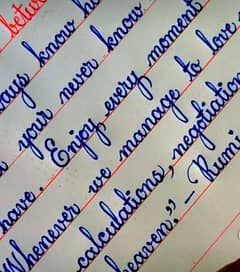 betw
ays know ho
your never know
have. Enjoy every moment
Whenever we manage to love
calculations, negotiation
heaven." - Rumi